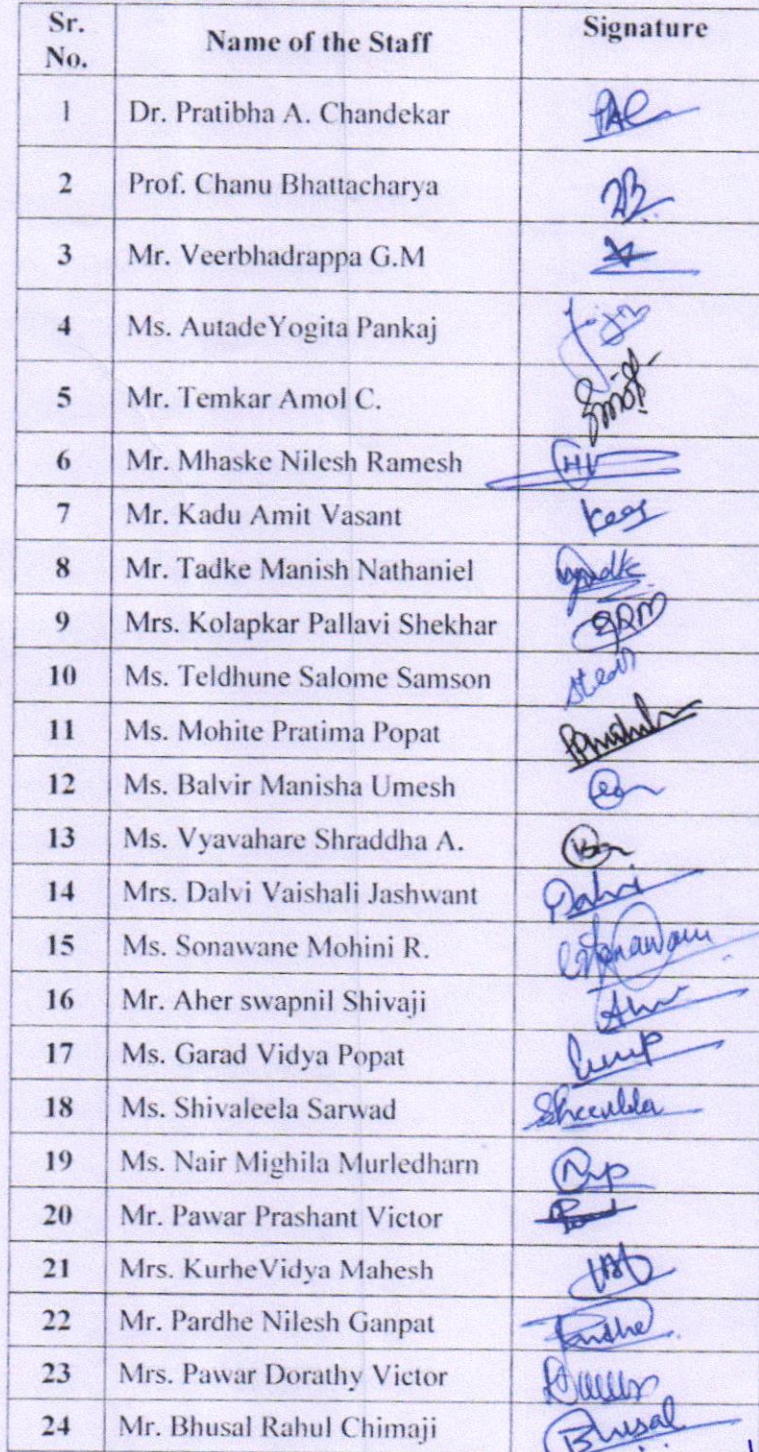 Sr. No. Name of the Staff Signature
1 Dr. Pratibha A. Chandekar PAC
2 Prof. Chanu Bhattacharya
3 Mr. Veerbhadrappa G.M
4 Ms. AutadeYogita Pankaj
5 Mr. Temkar Amol C.
6 Mr. Mhaske Nilesh Ramesh
7 Mr. Kadu Amit Vasant
8 Mr. Tadke Manish Nathaniel
9 Mrs. Kolapkar Pallavi Shekhar
10 Ms. Teldhune Salome Samson
11 Ms. Mohite Pratima Popat
12 Ms. Balvir Manisha Umesh
13 Ms. Vyavahare Shraddha A.
14 Mrs. Dalvi Vaishali Jashwant Dalvi
15 Ms. Sonawane Mohini R.
16 Mr. Aher swapnil Shivaji
17 Ms. Garad Vidya Popat
18 Ms. Shivaleela Sarwad
19 Ms. Nair Mighila Murledharn
20 Mr. Pawar Prashant Victor
21 Mrs. KurheVidya Mahesh
22 Mr. Pardhe Nilesh Ganpat
23 Mrs. Pawar Dorathy Victor
24 Mr. Bhusal Rahul Chimaji Bhusal